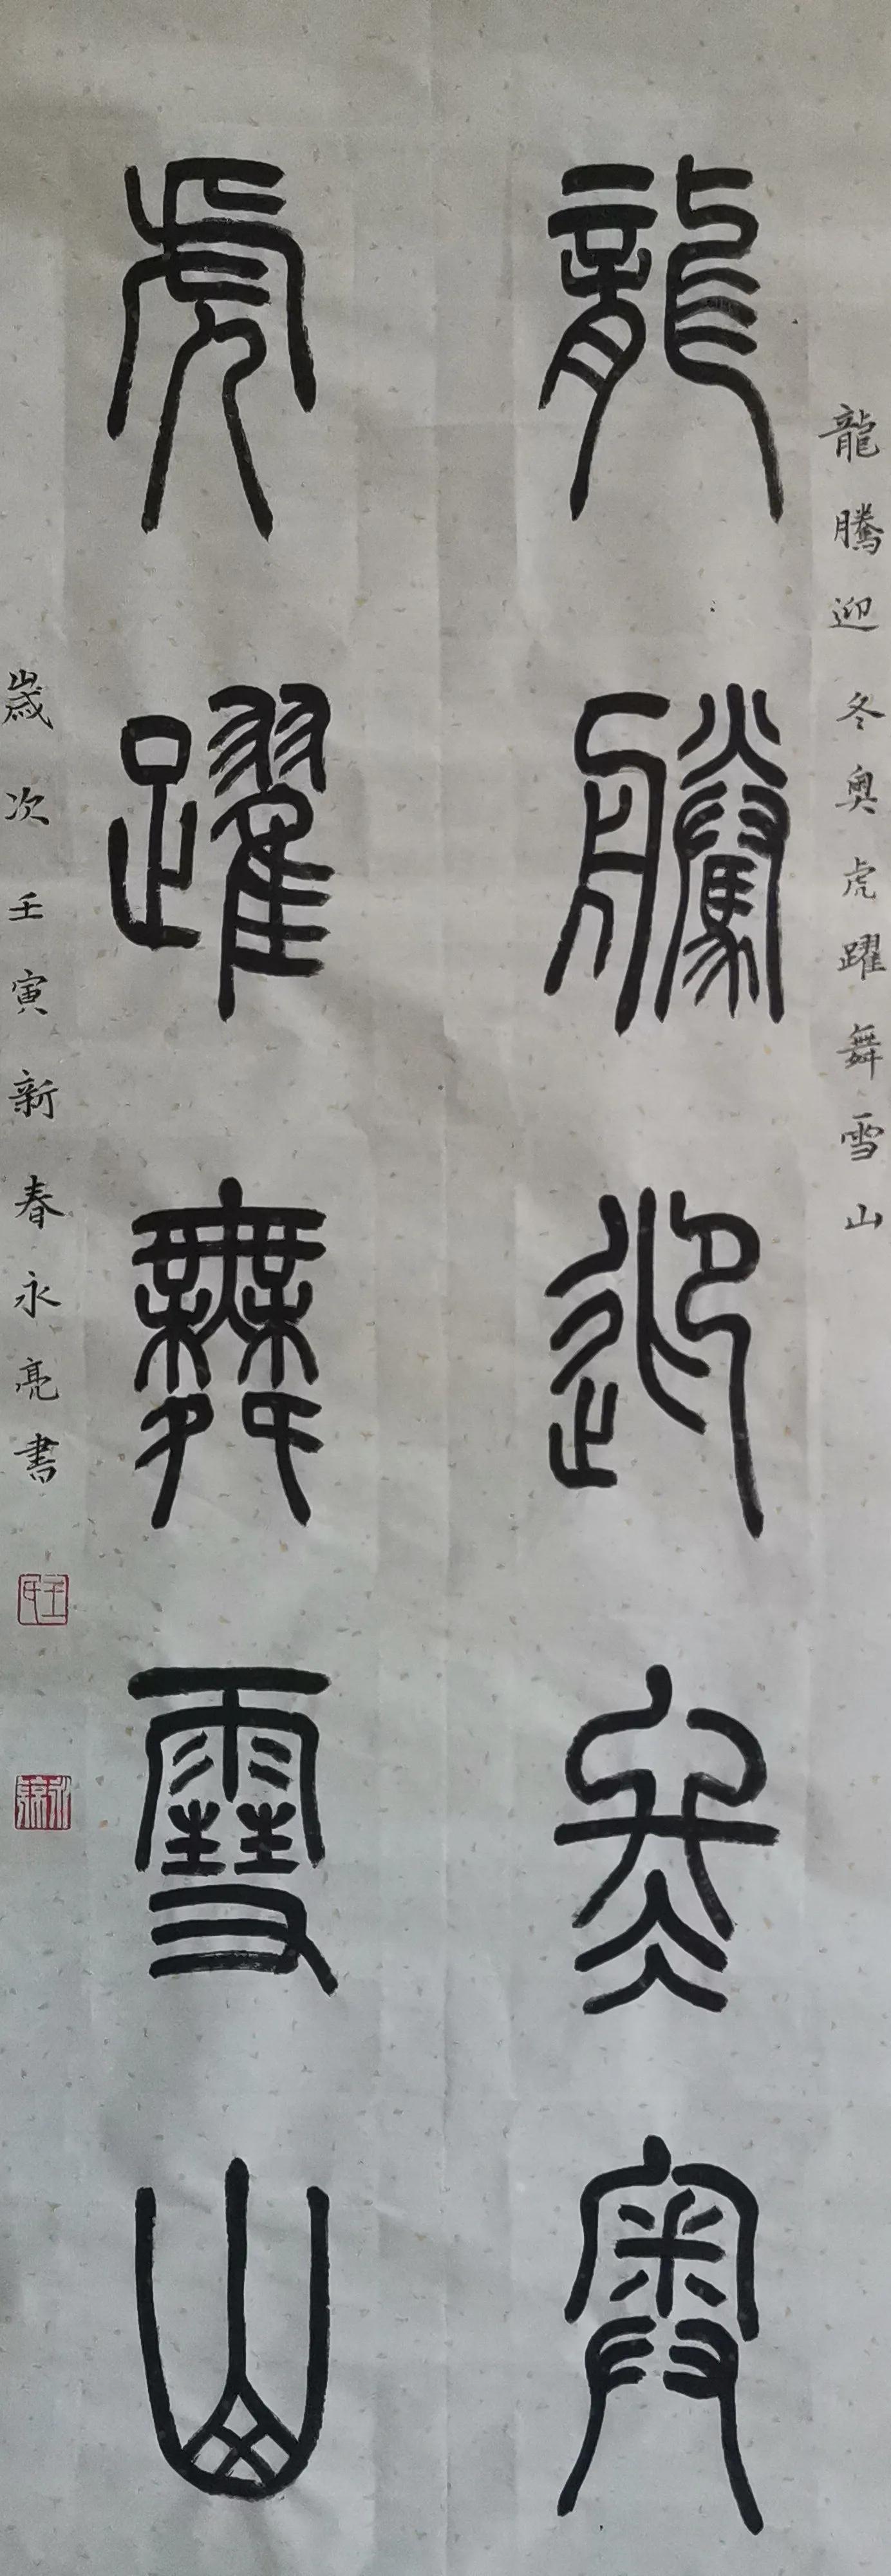 龍騰迎冬奧虎躍舞雪山
龍騰迎冬奧
虎躍舞雪山
歲次壬寅新春永亮書
王氏